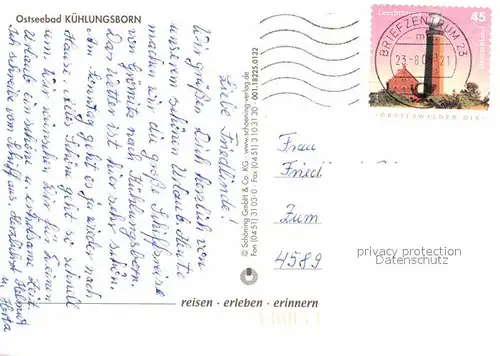 Ostseebad KÜHLUNGSBORN
Liebe Friedlinde!
Wir grüßen Dich herzlich von
unserem schönen Urlaub. Heute
machen wir die große Schiffsreise
von Grömitz nach Kühlungsborn.
Das Wetter ist hier sehr schön.
Am Sonntag geht es ja wieder nach
Hause. Alles Schöne geht so schnell
um. Wir wünschen Dir für Deinen
Urlaub eine schöne u. erholsame Zeit.
Ich schreibe vom Schiff aus. Herzlichst Helmut
u. Herta
© Schöning GmbH & Co. KG · www.schoening-verlag.de
Fon (0451) 3103-0 · Fax (0451) 310 31 30 001.18225.0132
reisen · erleben · erinnern
45
BRIEFZENTRUM 23
23-8.0 21
Frau
Fried
Zum
4589
privacy protection
Datenschutz